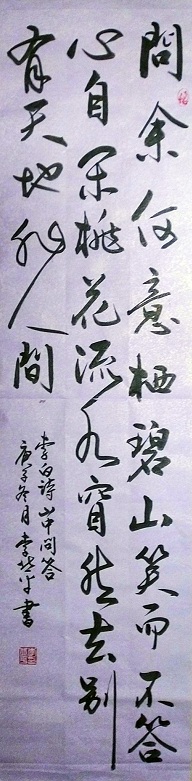 問余何意栖碧山笑而不答
心自闲桃花流水窅然去别
有天地非人間
李白诗山中问答
庚子冬月李笑平書